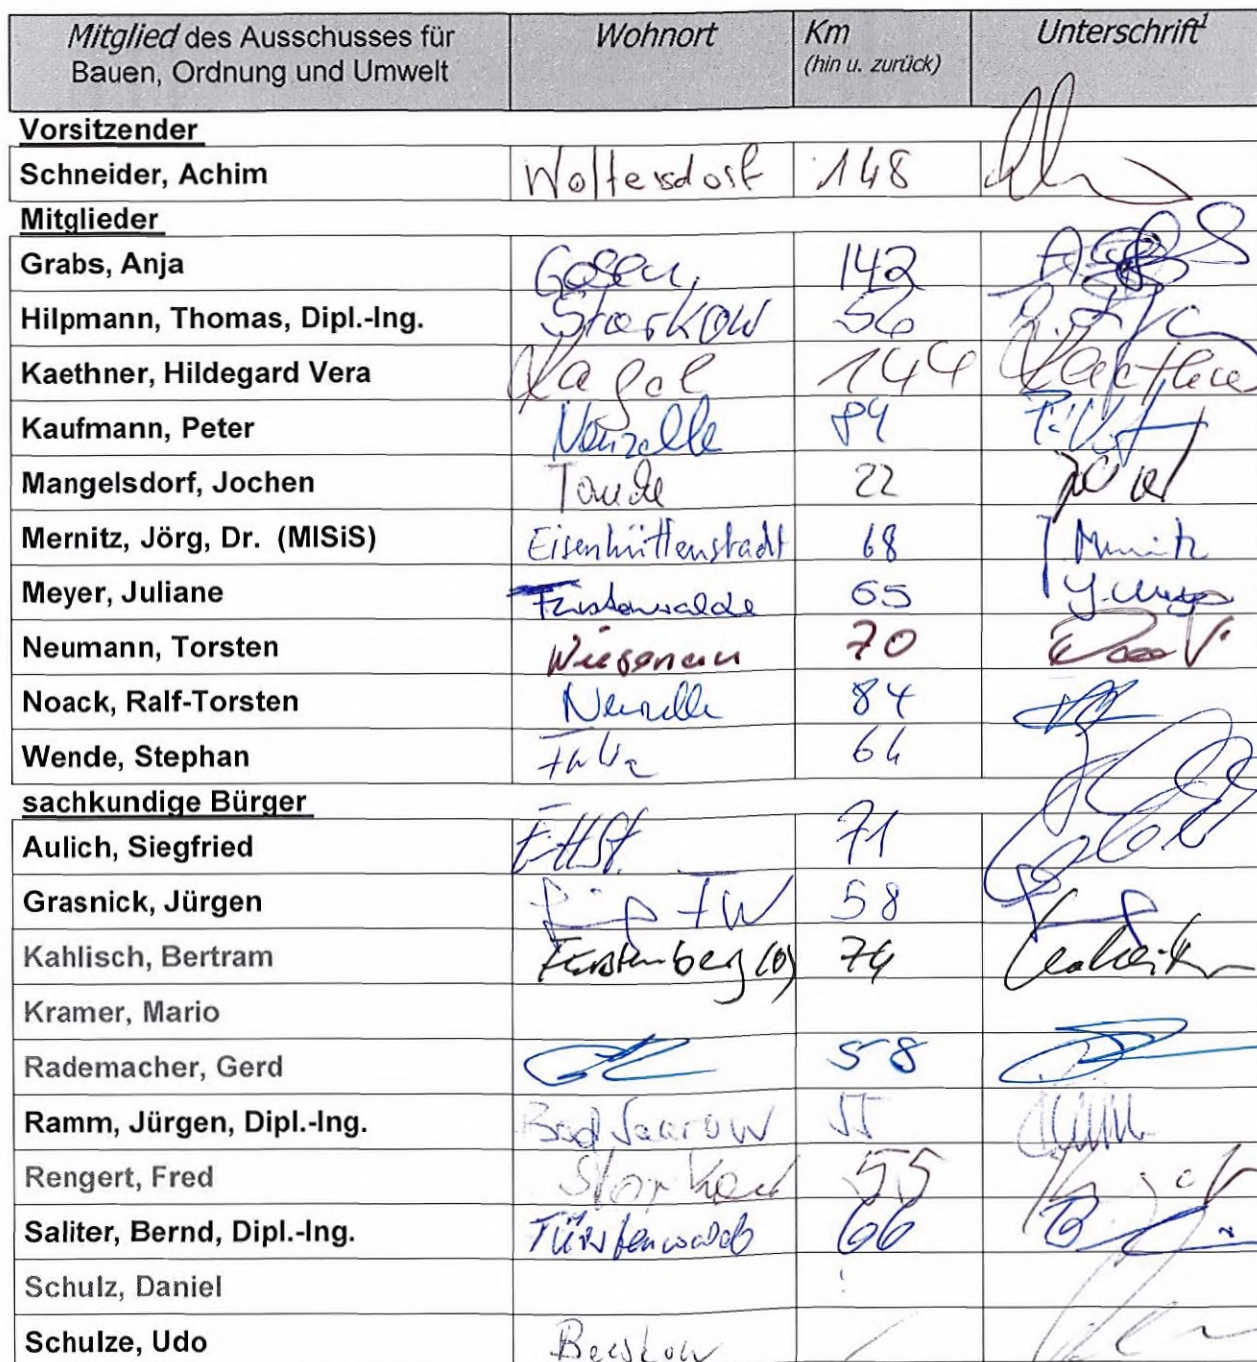 Mitglied des Ausschusses für Bauen, Ordnung und Umwelt Wohnort Km (hin u. zurück) Unterschrift¹
Vorsitzender
Schneider, Achim Woltersdorf 148
Mitglieder
Grabs, Anja Gosen, 142
Hilpmann, Thomas, Dipl.-Ing. Storkow 56
Kaethner, Hildegard Vera Kagel 144 Kaethner
Kaufmann, Peter Neuzelle 84
Mangelsdorf, Jochen Tauche 22
Mernitz, Jörg, Dr. (MISiS) Eisenhüttenstadt 68 Mernitz
Meyer, Juliane Fürstenwalde 65 J. Meyer
Neumann, Torsten Wiesenau 70
Noack, Ralf-Torsten Neuzelle 84
Wende, Stephan 64
sachkundige Bürger
Aulich, Siegfried E-HSt. 71
Grasnick, Jürgen FW 58
Kahlisch, Bertram Fürstenberg (O) 74
Kramer, Mario
Rademacher, Gerd 58
Ramm, Jürgen, Dipl.-Ing. Bad Saarow 55
Rengert, Fred Storkow 55
Saliter, Bernd, Dipl.-Ing. Fürstenwalde 66
Schulz, Daniel
Schulze, Udo Beeskow /